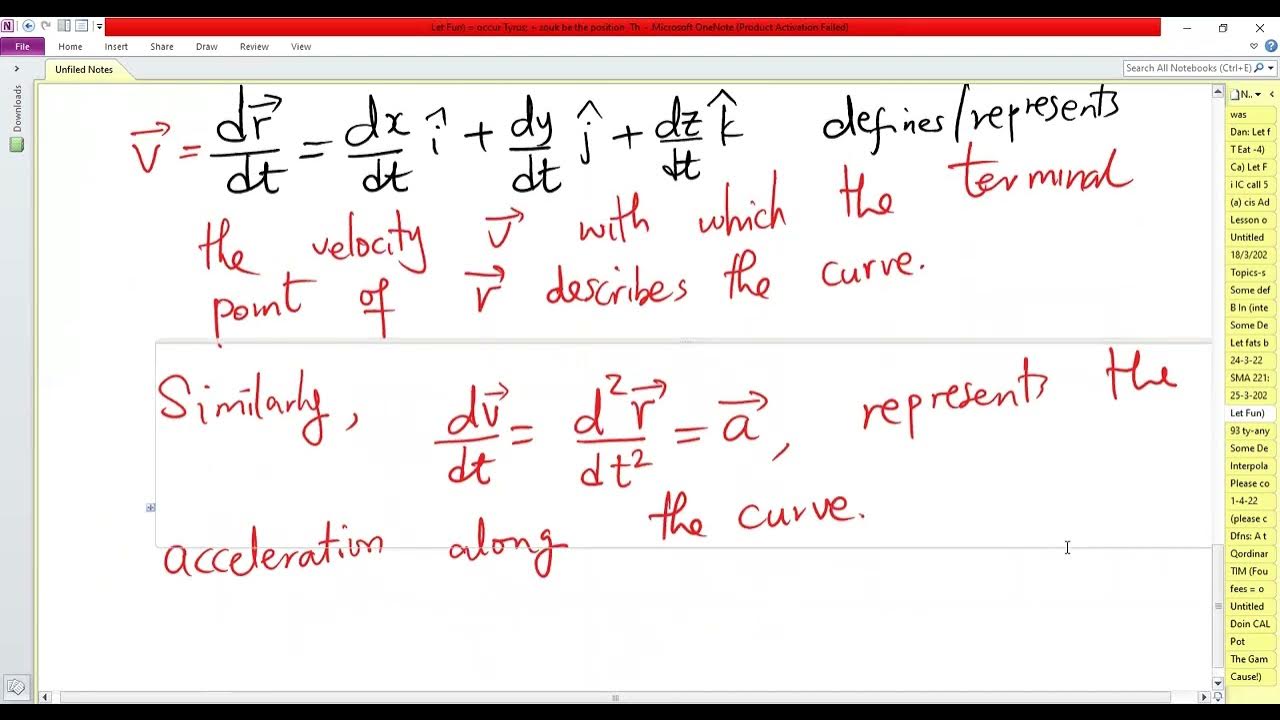 Let Fun) = occur Tyrus; + zouk be the position Th - Microsoft OneNote (Product Activation Failed)
File Home Insert Share Draw Review View
Unfiled Notes
Search All Notebooks (Ctrl+E)
N..
Downloads
v⃗ = dr⃗/dt = dx/dt î + dy/dt ĵ + dz/dt k̂ defines/represents
the velocity v⃗ with which the terminal
point of r⃗ describes the curve.
Similarly, dv⃗/dt = d²r⃗/dt² = a⃗, represents the
acceleration along the curve.
was
Dan: Let f
T Eat -4)
Ca) Let F
i IC call 5
(a) cis Ad
Lesson o
Untitled
18/3/202
Topics-s
Some def
B In (inte
Some De
Let fats b
24-3-22
SMA 221:
25-3-202
Let Fun)
93 ty-any
Some De
Interpola
Please co
1-4-22
(please c
Dfns: A t
Qordinar
TIM (Fou
fees = o
Untitled
Doin CAL
Pot
The Gam
Cause!)